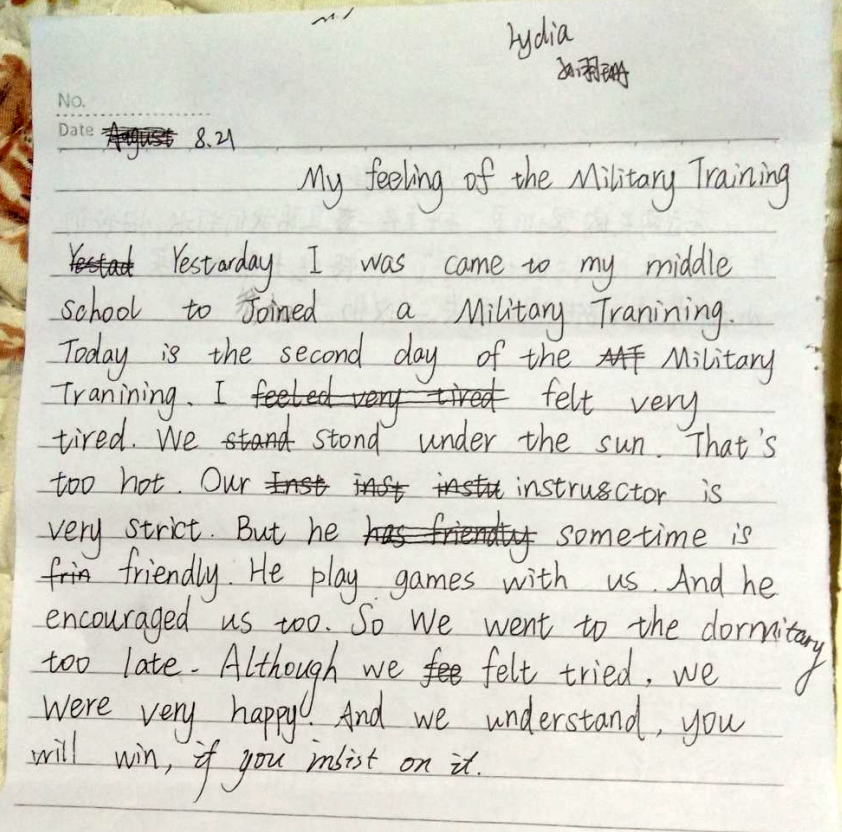 Lydia
No.
Date August 8.21
My feeling of the Military Training
Yestad Yestarday I was came to my middle
school to Joined a Military Tranining.
Today is the second day of the MT Military
Tranining. I feeled very tired felt very
tired. We stand stond under the sun. That's
too hot. Our Inst inst instu instru&ctor is
very strict. But he has friendly sometime is
frin friendly. He play games with us. And he
encouraged us too. So We went to the dormitary
too late. Although we fee felt tried, we
were very happy! And we understand, you
will win, if you insist on it.